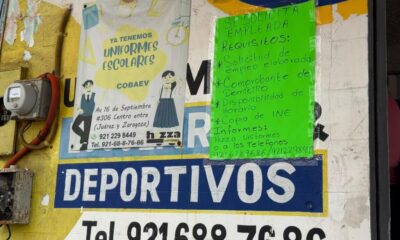 YA TENEMOS
UNIFORMES
ESCOLARES
COBAEV
Av 16 de Septiembre
#306 Centro entre
(Juárez y Zaragoza)
921 229 8449
Tel. 921-68-8-76-86
SE SOLICITA
EMPLEADA
REQUISITOS:
*Solicitud de
empleo elaborada
*Comprobante de
Domicilio
*Disponibilidad de
horario
*Copia de INE
Informes:
Uniformes
o a los Telefonos
DEPORTIVOS
Tel. 921 688 76 86